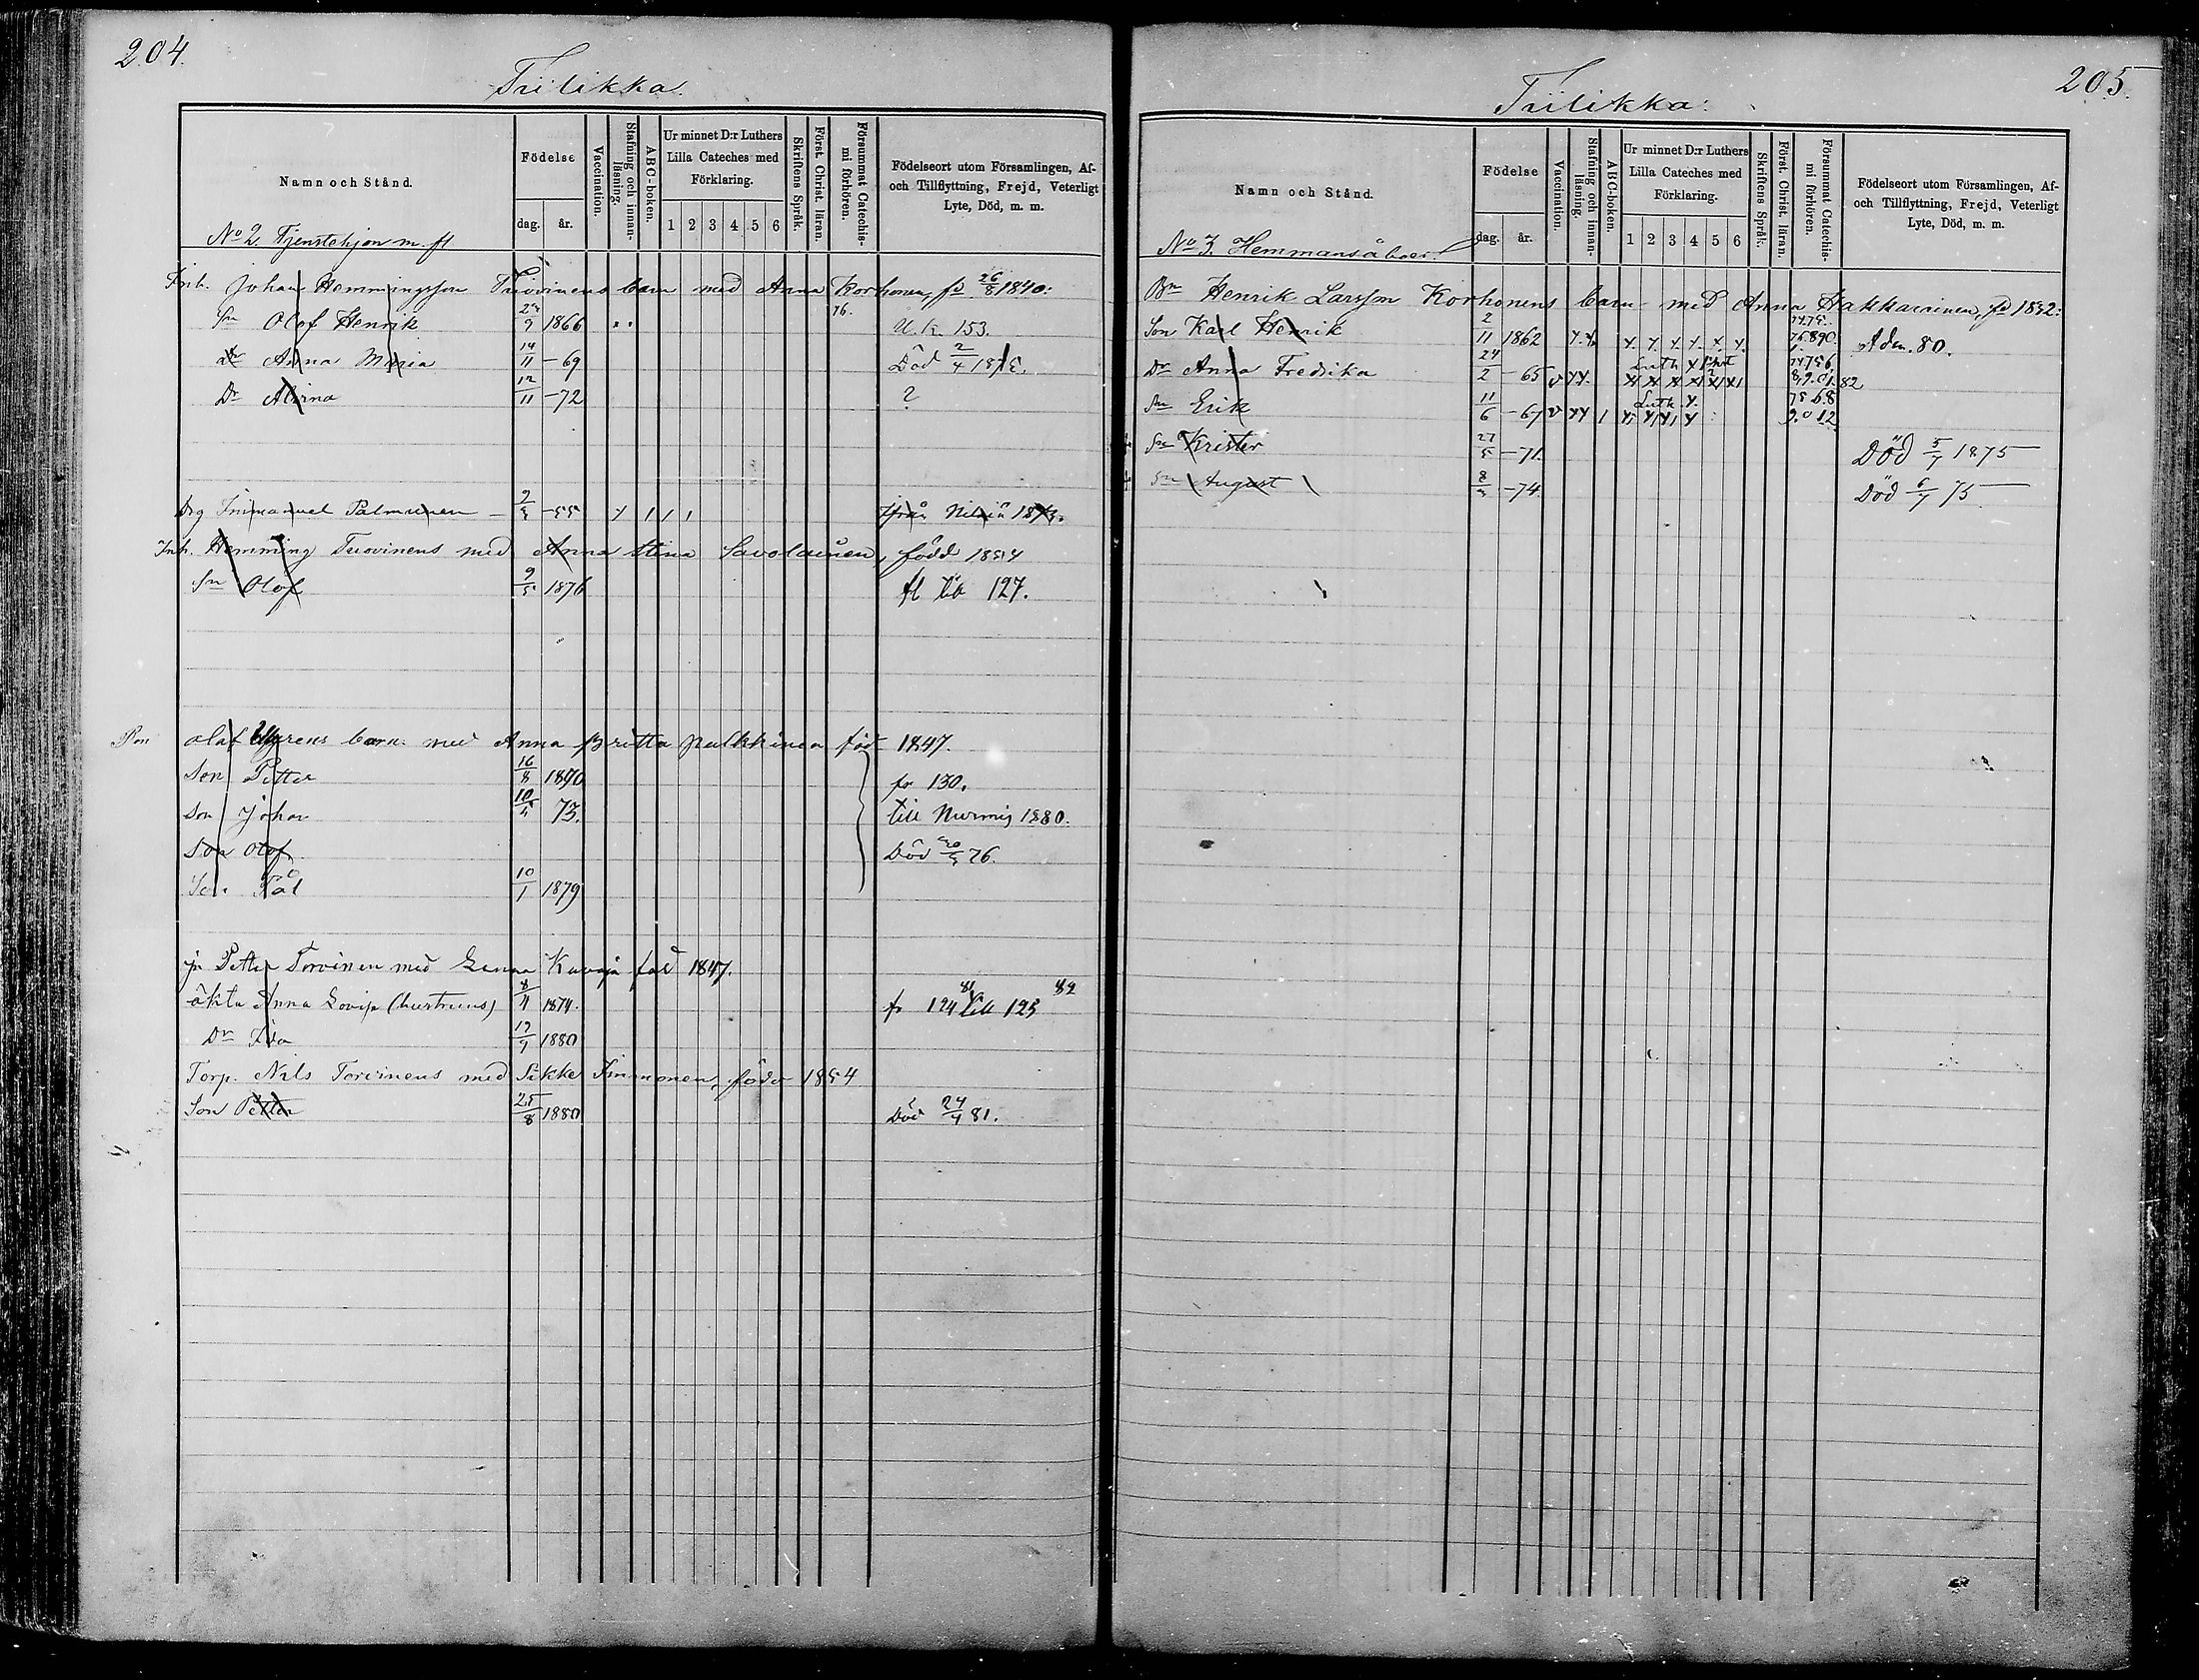 204.
Tiilikka.
Namn och Stånd.
Födelse
dag. år.
Vaccination.
Stafning och innan-läsning.
ABC-boken.
Ur minnet D:r Luthers Lilla Cateches med Förklaring.
1 2 3 4 5 6
Skriftens Språk.
Först. Christ. läran.
Försummat Catechis-mi förhören.
Födelseort utom Församlingen, Af- och Tillflyttning, Frejd, Veterligt Lyte, Död, m. m.
No 2. Tjenstehjon m. fl
Inh. Johan Hemmingsson Tuovinens barn med Anna Korhonen, fd 26/8 1840:
Sn Olof Henrik 1866 76. U. k. 153.
dr Anna Maria 14/11 -69 Död 2/4 1875.
Dr Alvina 12/11 -72 ?
Drg Immanuel Palmunen - -55 från Nilsiä 1873.
Inh. Hemming Tuovinens med Anna Stina Savolainen, född 1854
Sn Olof 9/5 1876 fl till 127.
Olaf barn med Anna Britta Pulkkinen föd 1847.
Son Petter 16/8 1870 fr 130.
Son Johan 10/4 73. till Nurmis 1880.
Son Olof Död 76.
Son Pål 10/1 1879
Petter Torvinen med Kuvaja föd 1847.
äkta Anna Lovisa (hustruns) 8/4 1874. fr 124 81 till 123 82
Dr Ida 1880
Torp. Nils Torvinens med Immonen, född 1854
Son Petter 25/8 1880 Död 24/4 81.
205.
Tiilikka.
Namn och Stånd.
Födelse
dag. år.
Vaccination.
Stafning och innan-läsning.
ABC-boken.
Ur minnet D:r Luthers Lilla Cateches med Förklaring.
1 2 3 4 5 6
Skriftens Språk.
Först. Christ. läran.
Försummat Catechis-mi förhören.
Födelseort utom Församlingen, Af- och Tillflyttning, Frejd, Veterligt Lyte, Död, m. m.
No 3. Hemmansåboer
Bn Henrik Larsson Korhonens barn med Anna Hakkarainen, fd 1832:
Son Karl Henrik 2/11 1862 Adm. 80.
Dr Anna Fredrika 24/2 -65 v Luth 82
Sn Erik 11/6 -67 v Luth
Sn Krister 27/5 -71. Död 5/7 1875
Sn August 8/3 -74. Död 6/7 75